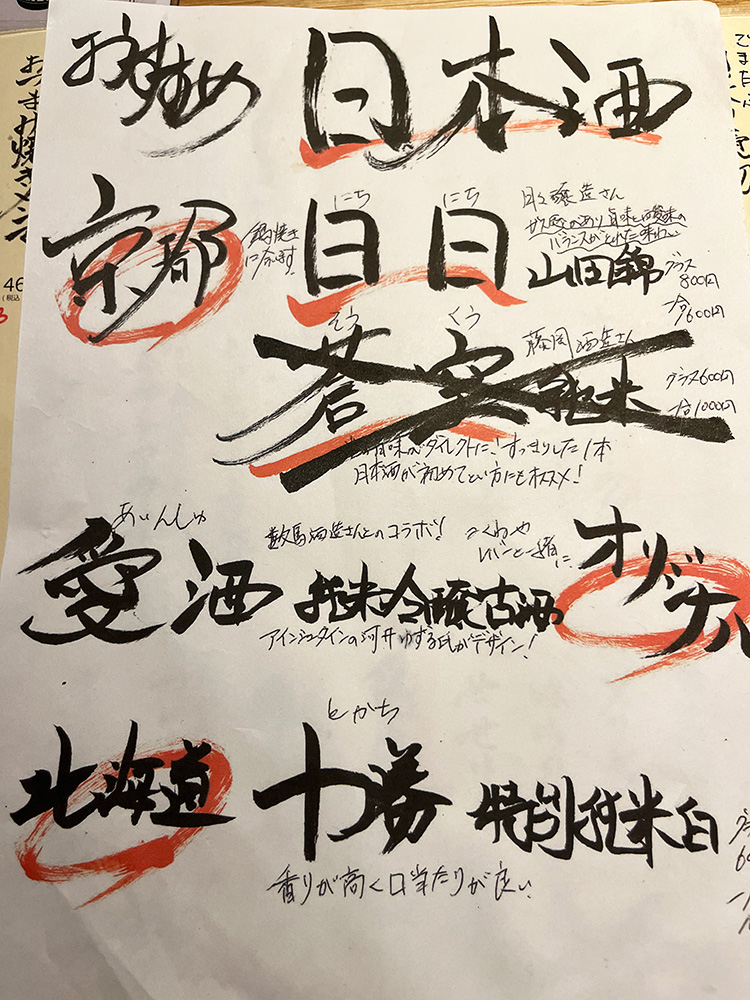 おすすめ 日本酒
京都
鍋焼き
に合います!
にち にち
日日
日々醸造さん
ガス感のあり旨味と酸味の
バランスがとれた味わい
山田錦
グラス
800円
一合
1600円
そう くう
蒼空
藤岡酒造さん
純米
グラス600円
一合1000円
米の旨味がダイレクトに!すっきりした1本
日本酒が初めてという方にもオススメ!
あいんしゅ
愛酒
数馬酒造さんとのコラボ!
つくねや
レバーと一緒に
純米吟醸古酒
オリジナル
アインシュタインの河井ゆずる氏がデザイン!
北海道
とかち
十勝
特別純米白
香りが高く口当たりが良い
おつまみ焼きメン
46
(税込